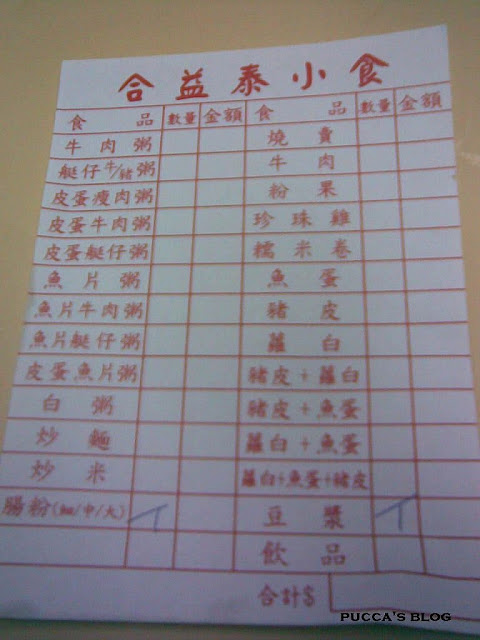 合益泰小食
食品 數量 金額 食品 數量 金額
牛肉粥 燒賣
艇仔牛/豬粥 牛肉
皮蛋瘦肉粥 粉果
皮蛋牛肉粥 珍珠雞
皮蛋艇仔粥 糯米卷
魚片粥 魚蛋
魚片牛肉粥 豬皮
魚片艇仔粥 蘿白
皮蛋魚片粥 豬皮+蘿白
白粥 豬皮+魚蛋
炒麵 蘿白+魚蛋
炒米 蘿白+魚蛋+豬皮
腸粉(細/中/大) 豆漿
飲品
合計$
PUCCA'S BLOG